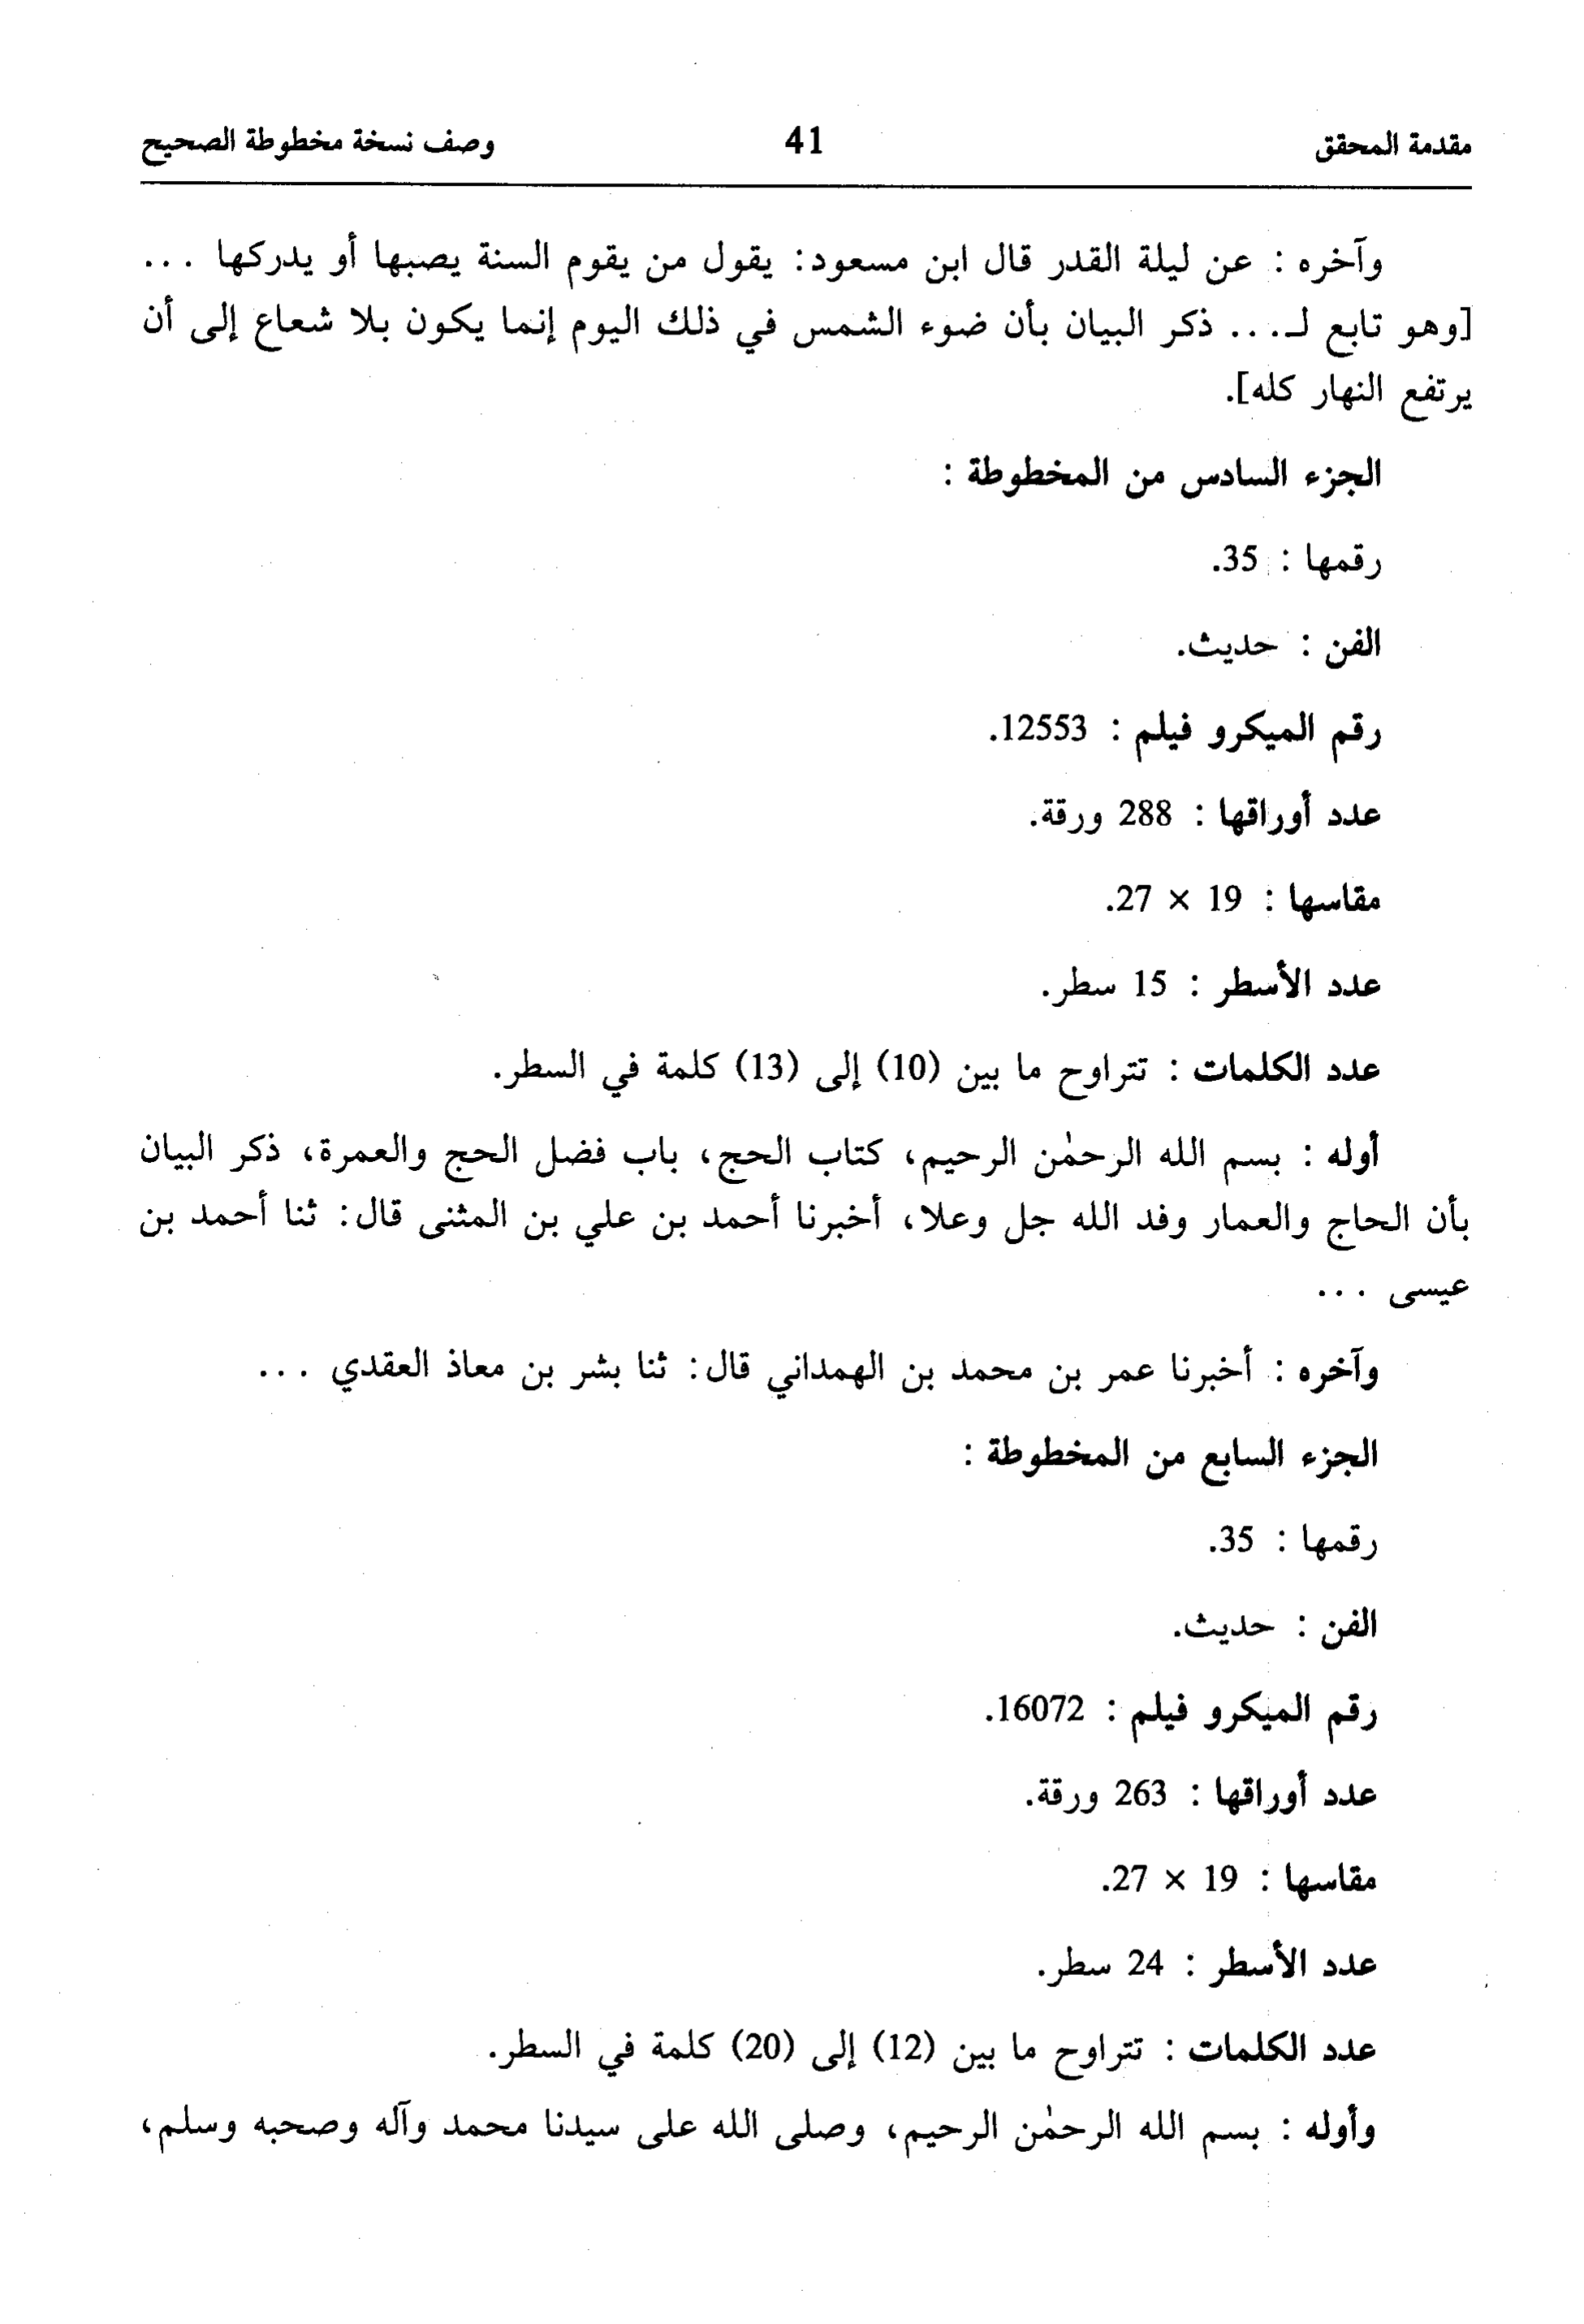 مقدمة المحقق 41 وصف نسخة مخطوطة الصحيح
وآخره : عن ليلة القدر قال ابن مسعود: يقول من يقوم السنة يصبها أو يدركها ...
[وهو تابع لـ... ذكر البيان بأن ضوء الشمس في ذلك اليوم إنما يكون بلا شعاع إلى أن
يرتفع النهار كله].
الجزء السادس من المخطوطة :
رقمها : 35.
الفن : حديث.
رقم الميكرو فيلم : 12553.
عدد أوراقها : 288 ورقة.
مقاسها : 19 × 27.
عدد الأسطر : 15 سطر.
عدد الكلمات : تتراوح ما بين (10) إلى (13) كلمة في السطر.
أوله : بسم الله الرحمٰن الرحيم، كتاب الحج، باب فضل الحج والعمرة، ذكر البيان
بأن الحاج والعمار وفد الله جل وعلا، أخبرنا أحمد بن علي بن المثنى قال: ثنا أحمد بن
عيسى ...
وآخره : أخبرنا عمر بن محمد بن الهمداني قال: ثنا بشر بن معاذ العقدي ...
الجزء السابع من المخطوطة :
رقمها : 35.
الفن : حديث.
رقم الميكرو فيلم : 16072.
عدد أوراقها : 263 ورقة.
مقاسها : 19 × 27.
عدد الأسطر : 24 سطر.
عدد الكلمات : تتراوح ما بين (12) إلى (20) كلمة في السطر.
وأوله : بسم الله الرحمٰن الرحيم، وصلى الله على سيدنا محمد وآله وصحبه وسلم،